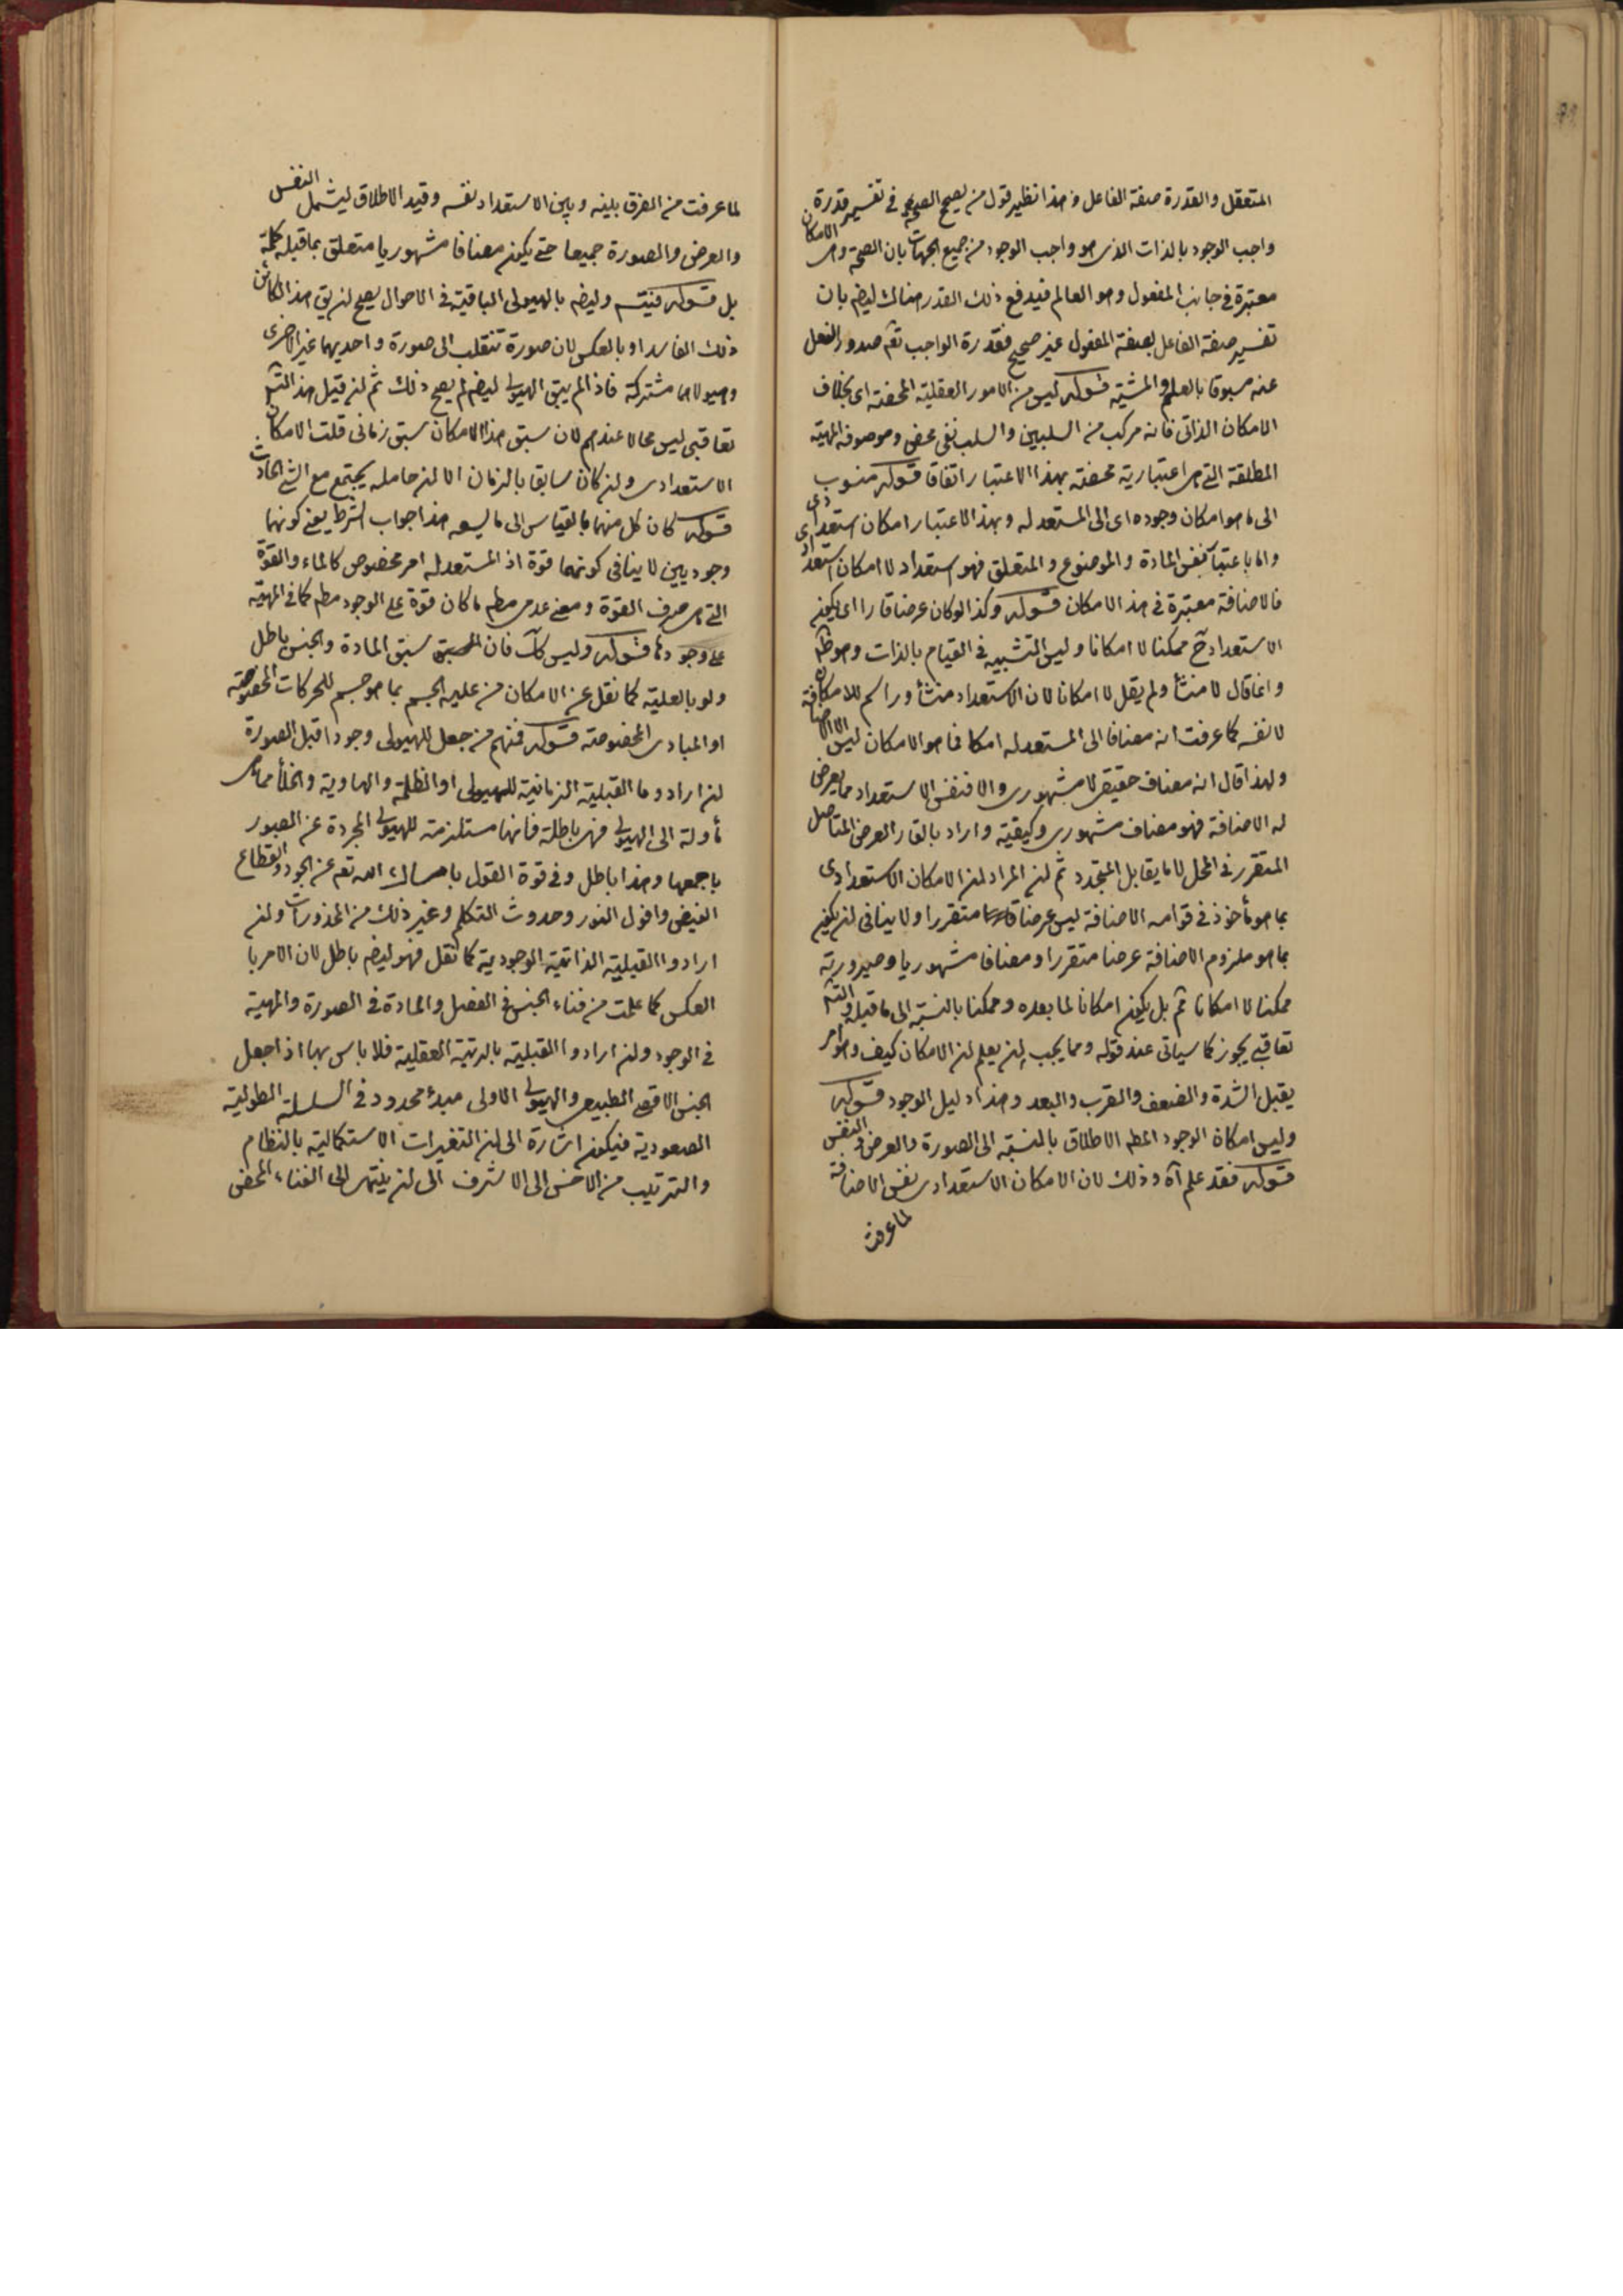 المتعقل والقدرة صفة الفاعل وهذا نظير قول من يصح الصحة في تفسير قدرة
واجب الوجود بالذات الذى هو واجب الوجود من جميع الجهات بان الصحة وهى الامكان
معتبرة في جانب المفعول وهو العالم فيدفع ذلك القدر هناك ليضم بان
تفسير صفة الفاعل بصفة المفعول غير صحيح فقدرة الواجب تعم صدور الفعل
عنه مسبوقا بالعلم والمشية قوله ليس من الامور العقلية المحضة اى بخلاف
الامكان الذاتى فانه مركب من السلبين والسلب نفى محض وموصوفه المهية
المطلقة التى هى اعتبارية محضة بهذا الاعتبار اتفاقا قوله منسوب
الى ما هو امكان وجوده اى الى المستعد له وبهذا الاعتبار امكان استعدادى
واما باعتبار نفس المادة والموضوع والمتعلق فهو استعداد لا امكان استعدادى
فالاضافة معتبرة في هذا الامكان قوله وكذا لو كان عرضا قارا اى يكون
الاستعداد ح ممكنا لا امكانا وليس التشبيه في القيام بالذات وهو ظ
وانما قال لا منشأ ولم يقل لا امكانا لان الاستعداد منشأ وراسم للامكان
لا نفسه كما عرفت انه مضافا الى المستعد له امكان فما هو الامكان ليس الا الاضافة
ولهذا قال انه مضاف حقيقى لا مشهورى والا فنفس الاستعداد مما يعرض
له الاضافة فهو مضاف مشهورى وكيفية واراد بالقار العرض المتاصل
المتقرر في المحل لا ما يقابل المتجدد ثم لن المراد لن الامكان الاستعدادى
بما هو مأخوذ في قوامه الاضافة ليس عرضا متقررا ولا ينافى لن يكون
بما هو ملزوم الاضافة عرضا متقررا ومضافا مشهوريا وصيرورته
ممكنا لا امكانا ثم بل يكون امكانا لما بعده وممكنا بالنسبة الى ما قبله والتسم
تعاقبى يجوز كما سياتى عند قوله ومما يجب لن يعلم لن الامكان كيف وهو امر
يقبل الشدة والضعف والقرب والبعد وهذا دليل الوجود قوله
وليس امكان الوجود المطم الاطلاق بالنسبة الى الصورة والعرض والنفس
قوله فقد علم آه وذلك لان الامكان الاستعدادى نفس الاضافة
لما عرفت
لما عرفت من الفرق بينه وبين الاستعداد نفسه وقيد الاطلاق ليشمل النفس
والعرض والصورة جميعا حتى يكون مضافا مشهوريا متعلق بما قبله كلمة
بل قوله وليضم بالهيولى الباقية في الاحوال يصح لن يق هذا الكائن
ذلك الفاسد او بالعكس لان صورة تنقلب الى صورة واحديهما غير الاخرى
وهيولاهما مشتركة فاذا لم يبق الهيولى ليضم لم يصح ذلك ثم لن قيل هذا التسم
تعاقبى ليس محالا عندهم لان سبق هذا الامكان سبق زمانى قلت الامكان
الاستعدادى ولن كان سابقا بالزمان الا لن حامله يجتمع مع الشئ الحادث
قوله كان كل منهما بالقياس الى ما ليس هذا جواب الشرط يعنى كونهما
وجوديين لا ينافى كونهما قوة اذ المستعد له امر مخصوص كالماء والقوة
التى هى صرف القوة ومعنى عدمى مطم ما كان قوة على الوجود مطم كما في المهية
على وجودنا قوله وليس كك فان السبق سبق المادة والجنس باطل
ولو بالعلية كما نقل عن الامكان من علية الجسم بما هو جسم للحركات المخصوصة
او المبادى المخصوصة قوله فمنهم من جعل للهيولى وجودا قبل الصورة
لن ارادوا القبلية الزمانية للهيولى او الظلمة والهاوية والخلأ مما هى
مأولة الى الهيولى فهى باطلة فانها مستلزمة للهيولى المجردة عن الصور
باجمعها وهذا باطل وفي قوة القول بامساك الله تعم عن الجود وانقطاع
الفيض وافول النور وحدوث التكلم وغير ذلك من المحذورات ولن
ارادوا القبلية الذاتية الوجودية كما نقل فهو ليضم باطل لان الامر با
لعكس كما علمت من فناء الجنس في الفصل والمادة في الصورة والمهية
في الوجود ولن ارادوا القبلية بالرتبة العقلية فلا باس بها اذ اجعل
الجنس الاقصى الطبيعى والهيولى الاولى مبدءً محدود في السلسلة الطولية
الصعودية فيكون اشارة الى لن التغيرات الاستكمالية بالنظام
والترتيب من الاخس الى الاشرف الى لن ينتهى الى الفناء المحض